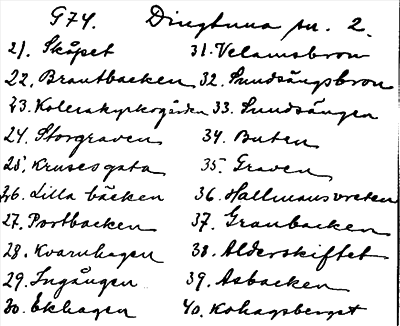 G74. Dingtuna sn. 2.
21. Skåpet
22. Brantbacken
23. Kolerakyrkogården
24. Storgraven
25. Krusesgata
26. Lilla bäcken
27. Portbacken
28. Kvarnhagen
29. Ingången
30. Ekhagen
31. Velamsbron
32. Sundsängsbron
33. Sundsängen
34. Buten
35. Graven
36. Hallmansvreten
37. Granbacken
38. Alderskiftet
39. Asbacken
40. Kohagsberget